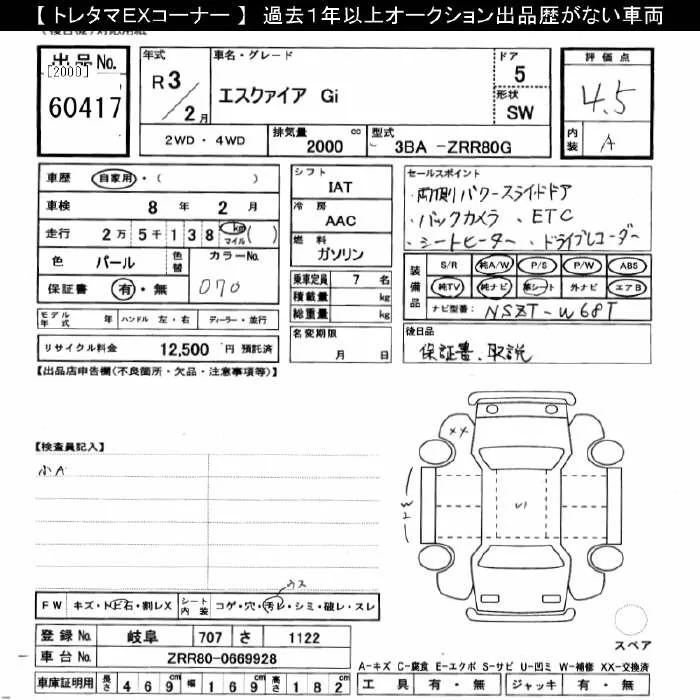 【 トレタマEXコーナー 】 過去1年以上オークション出品歴がない車両
出品No.
[2000]
60417
年式
R 3 / 2月
車名・グレード
エスクァイア Gi
ドア
5
形状
SW
評価点
4.5
内装
A
2WD・4WD
排気量 2000 cc
型式 3BA -ZRR80G
車歴 自家用・( )
車検 8 年 2 月
走行 2万 5千 1 3 8 km マイル ( )
色 パール
色替
カラーNo.
070
保証書 有・無
モデル年式 年 ハンドル 左・右 ディーラー・並行
リサイクル料金 12,500 円 預託済
シフト
IAT
冷房
AAC
燃料
ガソリン
乗車定員 7 名
積載量 kg
総重量 kg
名変期限
月 日
セールスポイント
・両側パワースライドドア
・バックカメラ ・ETC
・シートヒーター ・ドライブレコーダー
装備品
S/R 純A/W P/S P/W ABS
純TV 純ナビ 革シート 外ナビ エアB
ナビ型番: NSZT-W68T
後日品
保証書、取説
【出品店申告欄(不良箇所・欠品・注意事項等)】
【検査員記入】
小A
XX
W1
U1
ウス
FW キズ・トビ石・割レX
シート内装 コゲ・穴・汚レ・シミ・破レ・スレ
登録No. 岐阜 707 さ 1122
車台No. ZRR80-0669928
車庫証明用 長さ 469cm 幅 169cm 高さ 182cm
スペア
A-キズ C-腐食 E-エクボ S-サビ U-凹ミ W-補修 XX-交換済
工具 有・無 ジャッキ 有・無